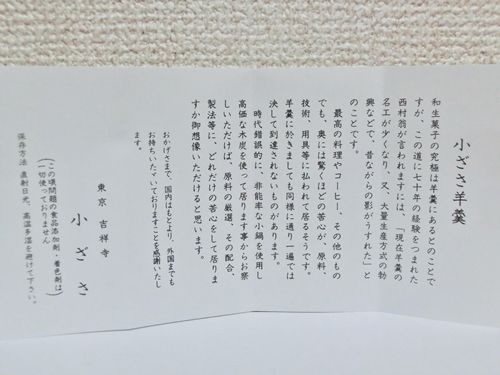 小ざさ羊羹
和生菓子の究極は羊羹にあるとのことで
すが、この道に七十年の経験をつまれた
西村翁が言われますには、「現在羊羹の
名工が少くなり、又、大量生産方式の勃
興などで、昔ながらの影がうすれた」と
のことです。
最高の料理やコーヒー、その他のもの
でも、奥には驚くほどの苦心が、原料、
技術、用具等に払われて居るそうです。
羊羹に於きましても同様に通り一遍では
決して到達されないものがあります。
時代錯誤的に、非能率な小鍋を使用し
高価な木炭を使って居ります事からお察
しいただけば、原料の厳選、その配合、
製法等に、どれだけの苦心をして居りま
すか御想像いただけると思います。
おかげさまで、国内はもとより、外国までも
お持ちいただいておりますことを感謝いたし
ます。
東京 吉祥寺
小ざさ
(この頃問題の食品添加剤、着色剤は
一切使っておりません)
保存方法 直射日光、高温多湿を避けて下さい。